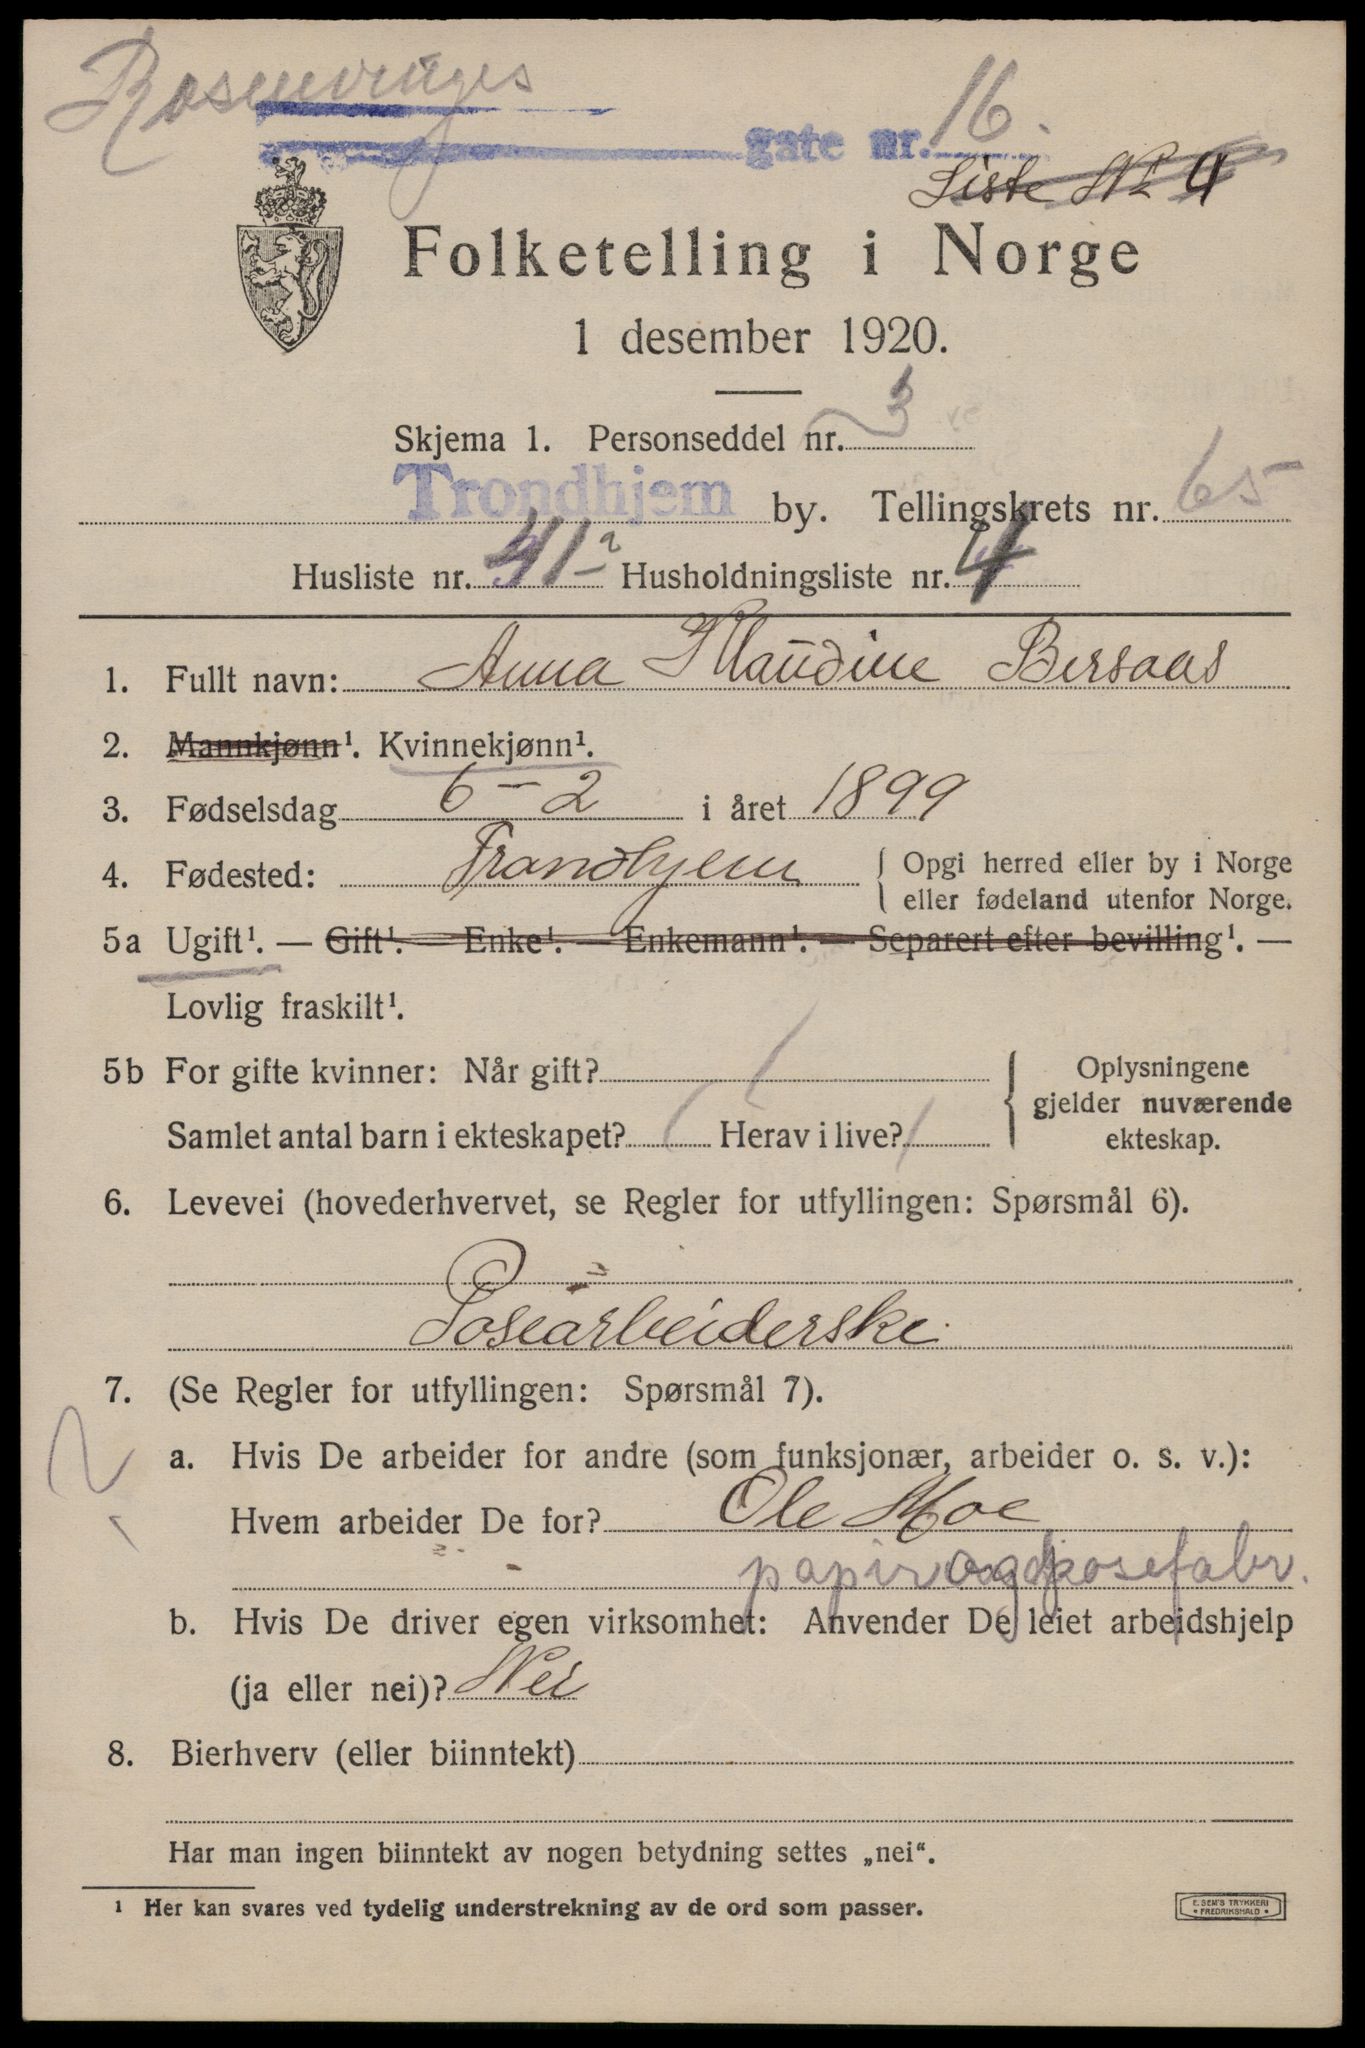 Rosenvinges
gate nr. 16.
Liste No 4
Folketelling i Norge
1 desember 1920.
Skjema 1. Personseddel nr. 3
Trondhjem by. Tellingskrets nr. 65
Husliste nr. 41a Husholdningsliste nr. 4
1. Fullt navn: Anna Klaudine Bersaas
2. Mannkjønn¹. Kvinnekjønn¹.
3. Fødselsdag 6-2 i året 1899
4. Fødested: Trondhjem { Opgi herred eller by i Norge
eller fødeland utenfor Norge.
5a Ugift¹. — Gift¹. — Enke¹. — Enkemann¹. — Separert efter bevilling¹. —
Lovlig fraskilt¹.
5b For gifte kvinner: Når gift? / { Oplysningene
gjelder nuværende
ekteskap.
Samlet antal barn i ekteskapet? / Herav i live? /
6. Levevei (hovederhvervet, se Regler for utfyllingen: Spørsmål 6).
Posearbeiderske
7. (Se Regler for utfyllingen: Spørsmål 7).
a. Hvis De arbeider for andre (som funksjonær, arbeider o. s. v.):
Hvem arbeider De for? Ole Moe
papir og posefabr.
b. Hvis De driver egen virksomhet: Anvender De leiet arbeidshjelp
(ja eller nei)? Nei
8. Bierhverv (eller biinntekt)
Har man ingen biinntekt av nogen betydning settes „nei“.
¹ Her kan svares ved tydelig understrekning av de ord som passer.
E. SEM'S TRYKKERI
• FREDRIKSHALD •